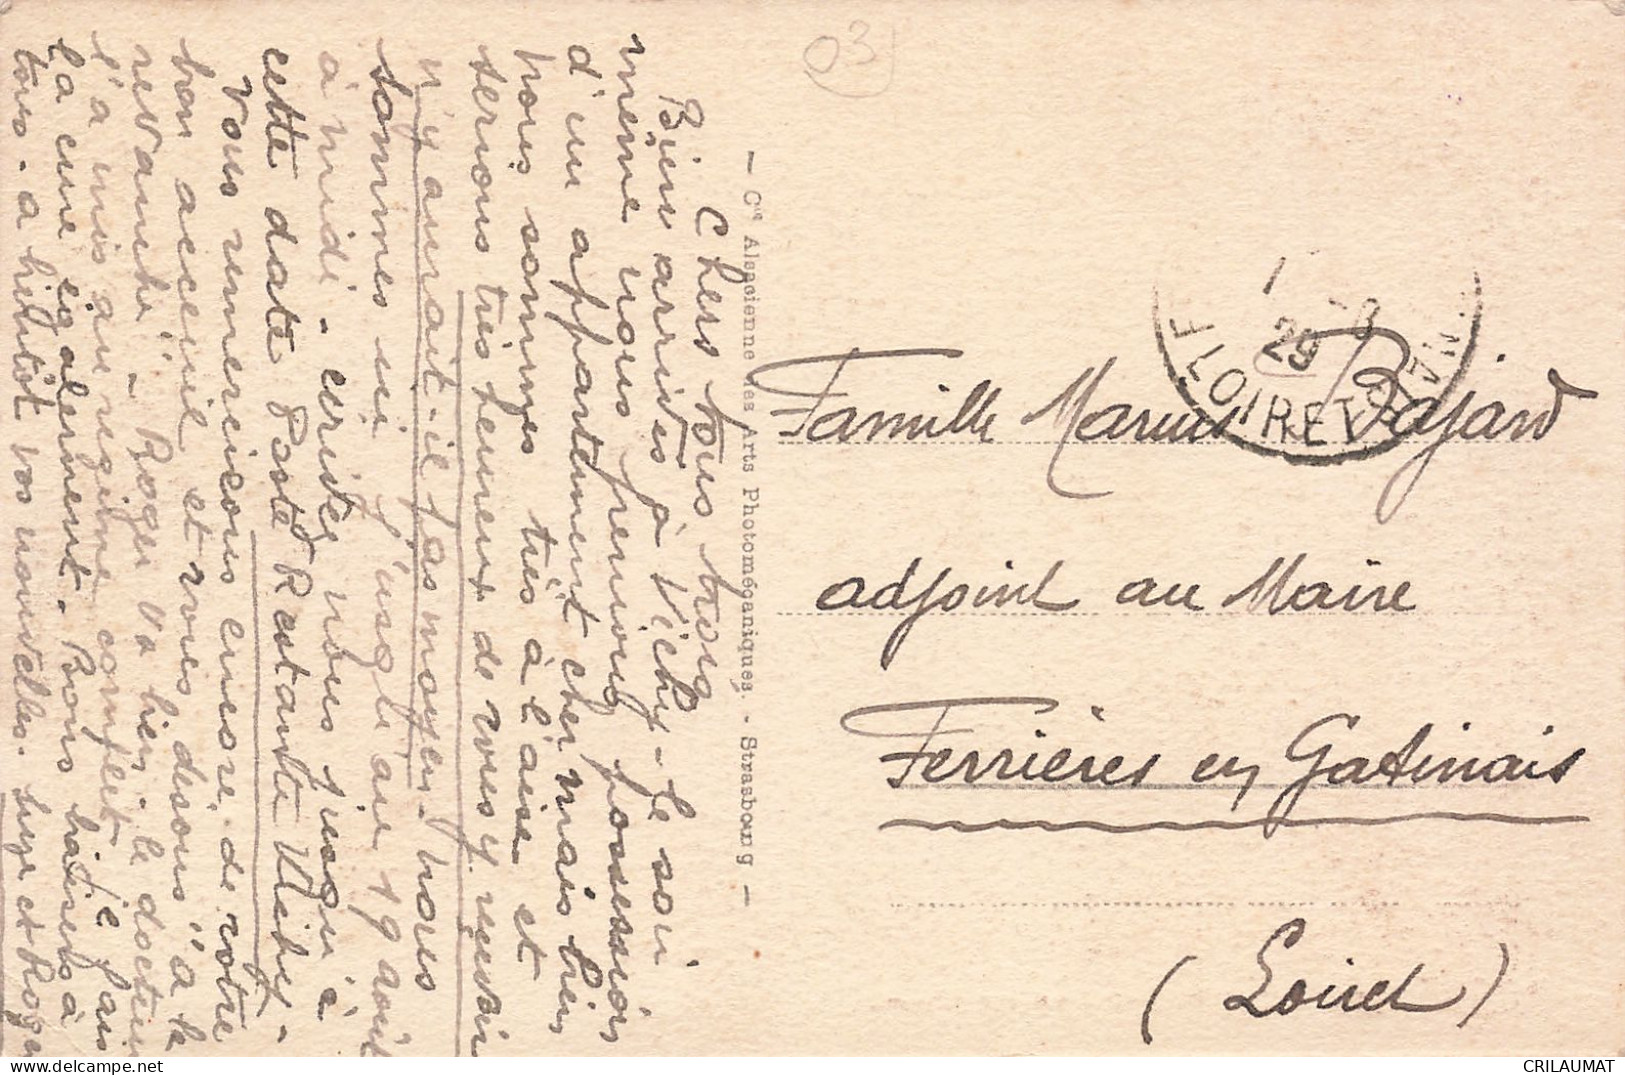 03
Chers tous trois
Bien arrivés à Vichy - le soir
même nous prenions possession
d'un appartement cher mais bien
nous sommes très à l'aise et
serions très heureux de vous y recevoir
n'y aurait-il pas moyen. nous
sommes ici jusqu'au 19 août
à midi - écrivez nous jusqu'à
cette date Poste Restante Vichy -
Vous remercions encore de votre
bon accueil et vous disons "à la
revanche" - Roger va bien le docteur
l'a mis au régime complet je fais
la cure également. Bons baisers à
tous - à bientôt vos nouvelles. et Roger
— Cie Alsacienne des Arts Photomécaniques. - Strasbourg —
29
LOIRET
Famille Marius Bajard
adjoint au Maire
Ferrières en Gatinais
(Loiret)
CRILAUMAT